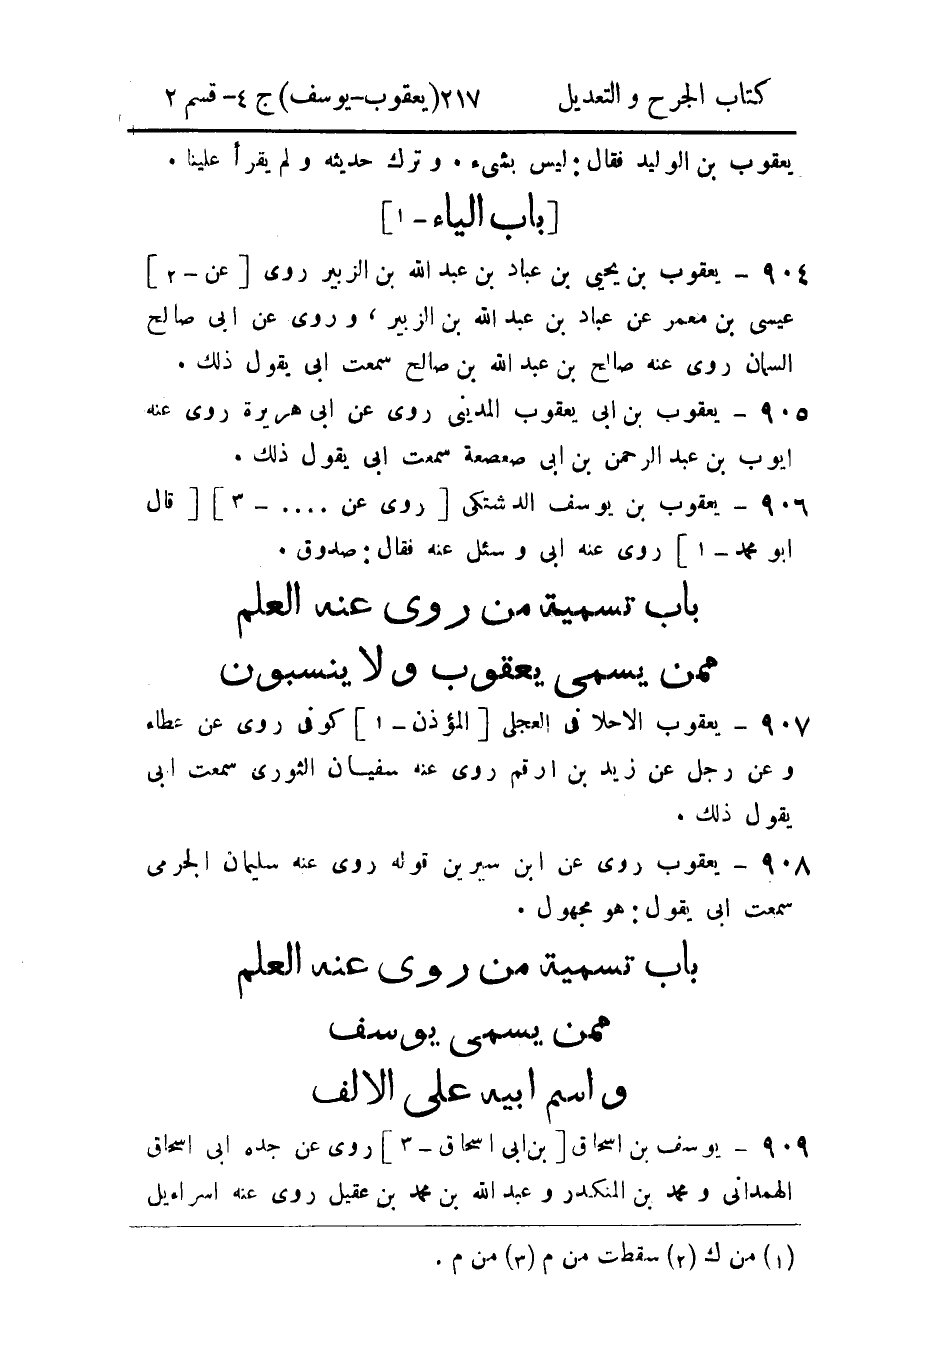 كتاب الجرح و التعديل ٢١٧ (يعقوب-يوسف) ج ٤- قسم ٢
يعقوب بن الوليد فقال: ليس بشىء . و ترك حديثه و لم يقرأ علينا .
[باب الياء - ١]
٩٠٤ - يعقوب بن يحيى بن عباد بن عبد الله بن الزبير روى [ عن - ٢ ]
عيسى بن معمر عن عباد بن عبد الله بن الزبير ، و روى عن ابى صالح
السمان روى عنه صالح بن عبد الله بن صالح سمعت ابى يقول ذلك .
٩٠٥ - يعقوب بن ابى يعقوب المدينى روى عن ابى هريرة روى عنه
ايوب بن عبد الرحمن بن ابى صعصعة سمعت ابى يقول ذلك .
٩٠٦ - يعقوب بن يوسف الدشتكى [ روى عن .... - ٣ ] [ قال
ابو محمد - ١ ] روى عنه ابى و سئل عنه فقال: صدوق .
باب تسمية من روى عنه العلم
ممن يسمى يعقوب و لا ينسبون
٩٠٧ - يعقوب الاحلافى العجلى [ المؤذن - ١ ] كوفى روى عن عطاء
و عن رجل عن زيد بن ارقم روى عنه سفيان الثورى سمعت ابى
يقول ذلك .
٩٠٨ - يعقوب روى عن ابن سيرين قوله روى عنه سليمان الجرمى
سمعت ابى يقول: هو مجهول .
باب تسمية من روى عنه العلم
ممن يسمى يوسف
و اسم ابيه على الالف
٩٠٩ - يوسف بن اسحاق [ بن ابى اسحاق - ٣ ] روى عن جده ابى اسحاق
الهمدانى و محمد بن المنكدر و عبد الله بن محمد بن عقيل روى عنه اسراءيل
(١) من ك (٢) سقطت من م (٣) من م .